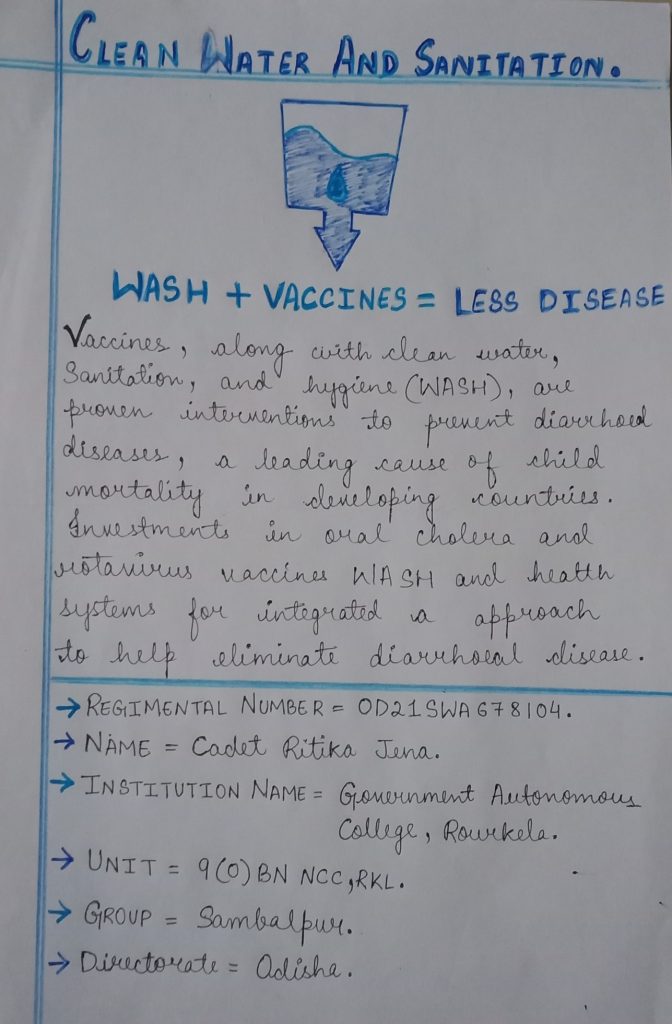 CLEAN WATER AND SANITATION.
WASH + VACCINES = LESS DISEASE
Vaccines, along with clean water,
Sanitation, and hygiene (WASH), are
proven interventions to prevent diarrhoeal
diseases, a leading cause of child
mortality in developing countries.
Investments in oral cholera and
rotavirus vaccines WASH and health
systems for integrated a approach
to help eliminate diarrhoeal disease.
→ REGIMENTAL NUMBER = OD21SWA678104.
→ NAME = Cadet Ritika Jena.
→ INSTITUTION NAME = Government Autonomous
College, Rourkela.
→ UNIT = 9(O) BN NCC, RKL.
→ GROUP = Sambalpur.
→ Directorate = Odisha.